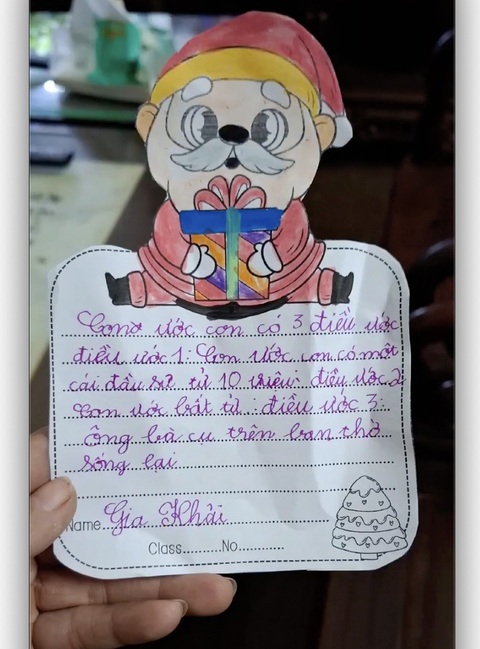 Con ước con có 3 điều ước
điều ước 1: Con ước con có một
cái đầu sư tử 10 triệu. điều ước 2
Con ước bất tử. điều ước 3:
Ông bà cụ trên ban thờ
sống lại
Name Gia Khải
Class..........No............